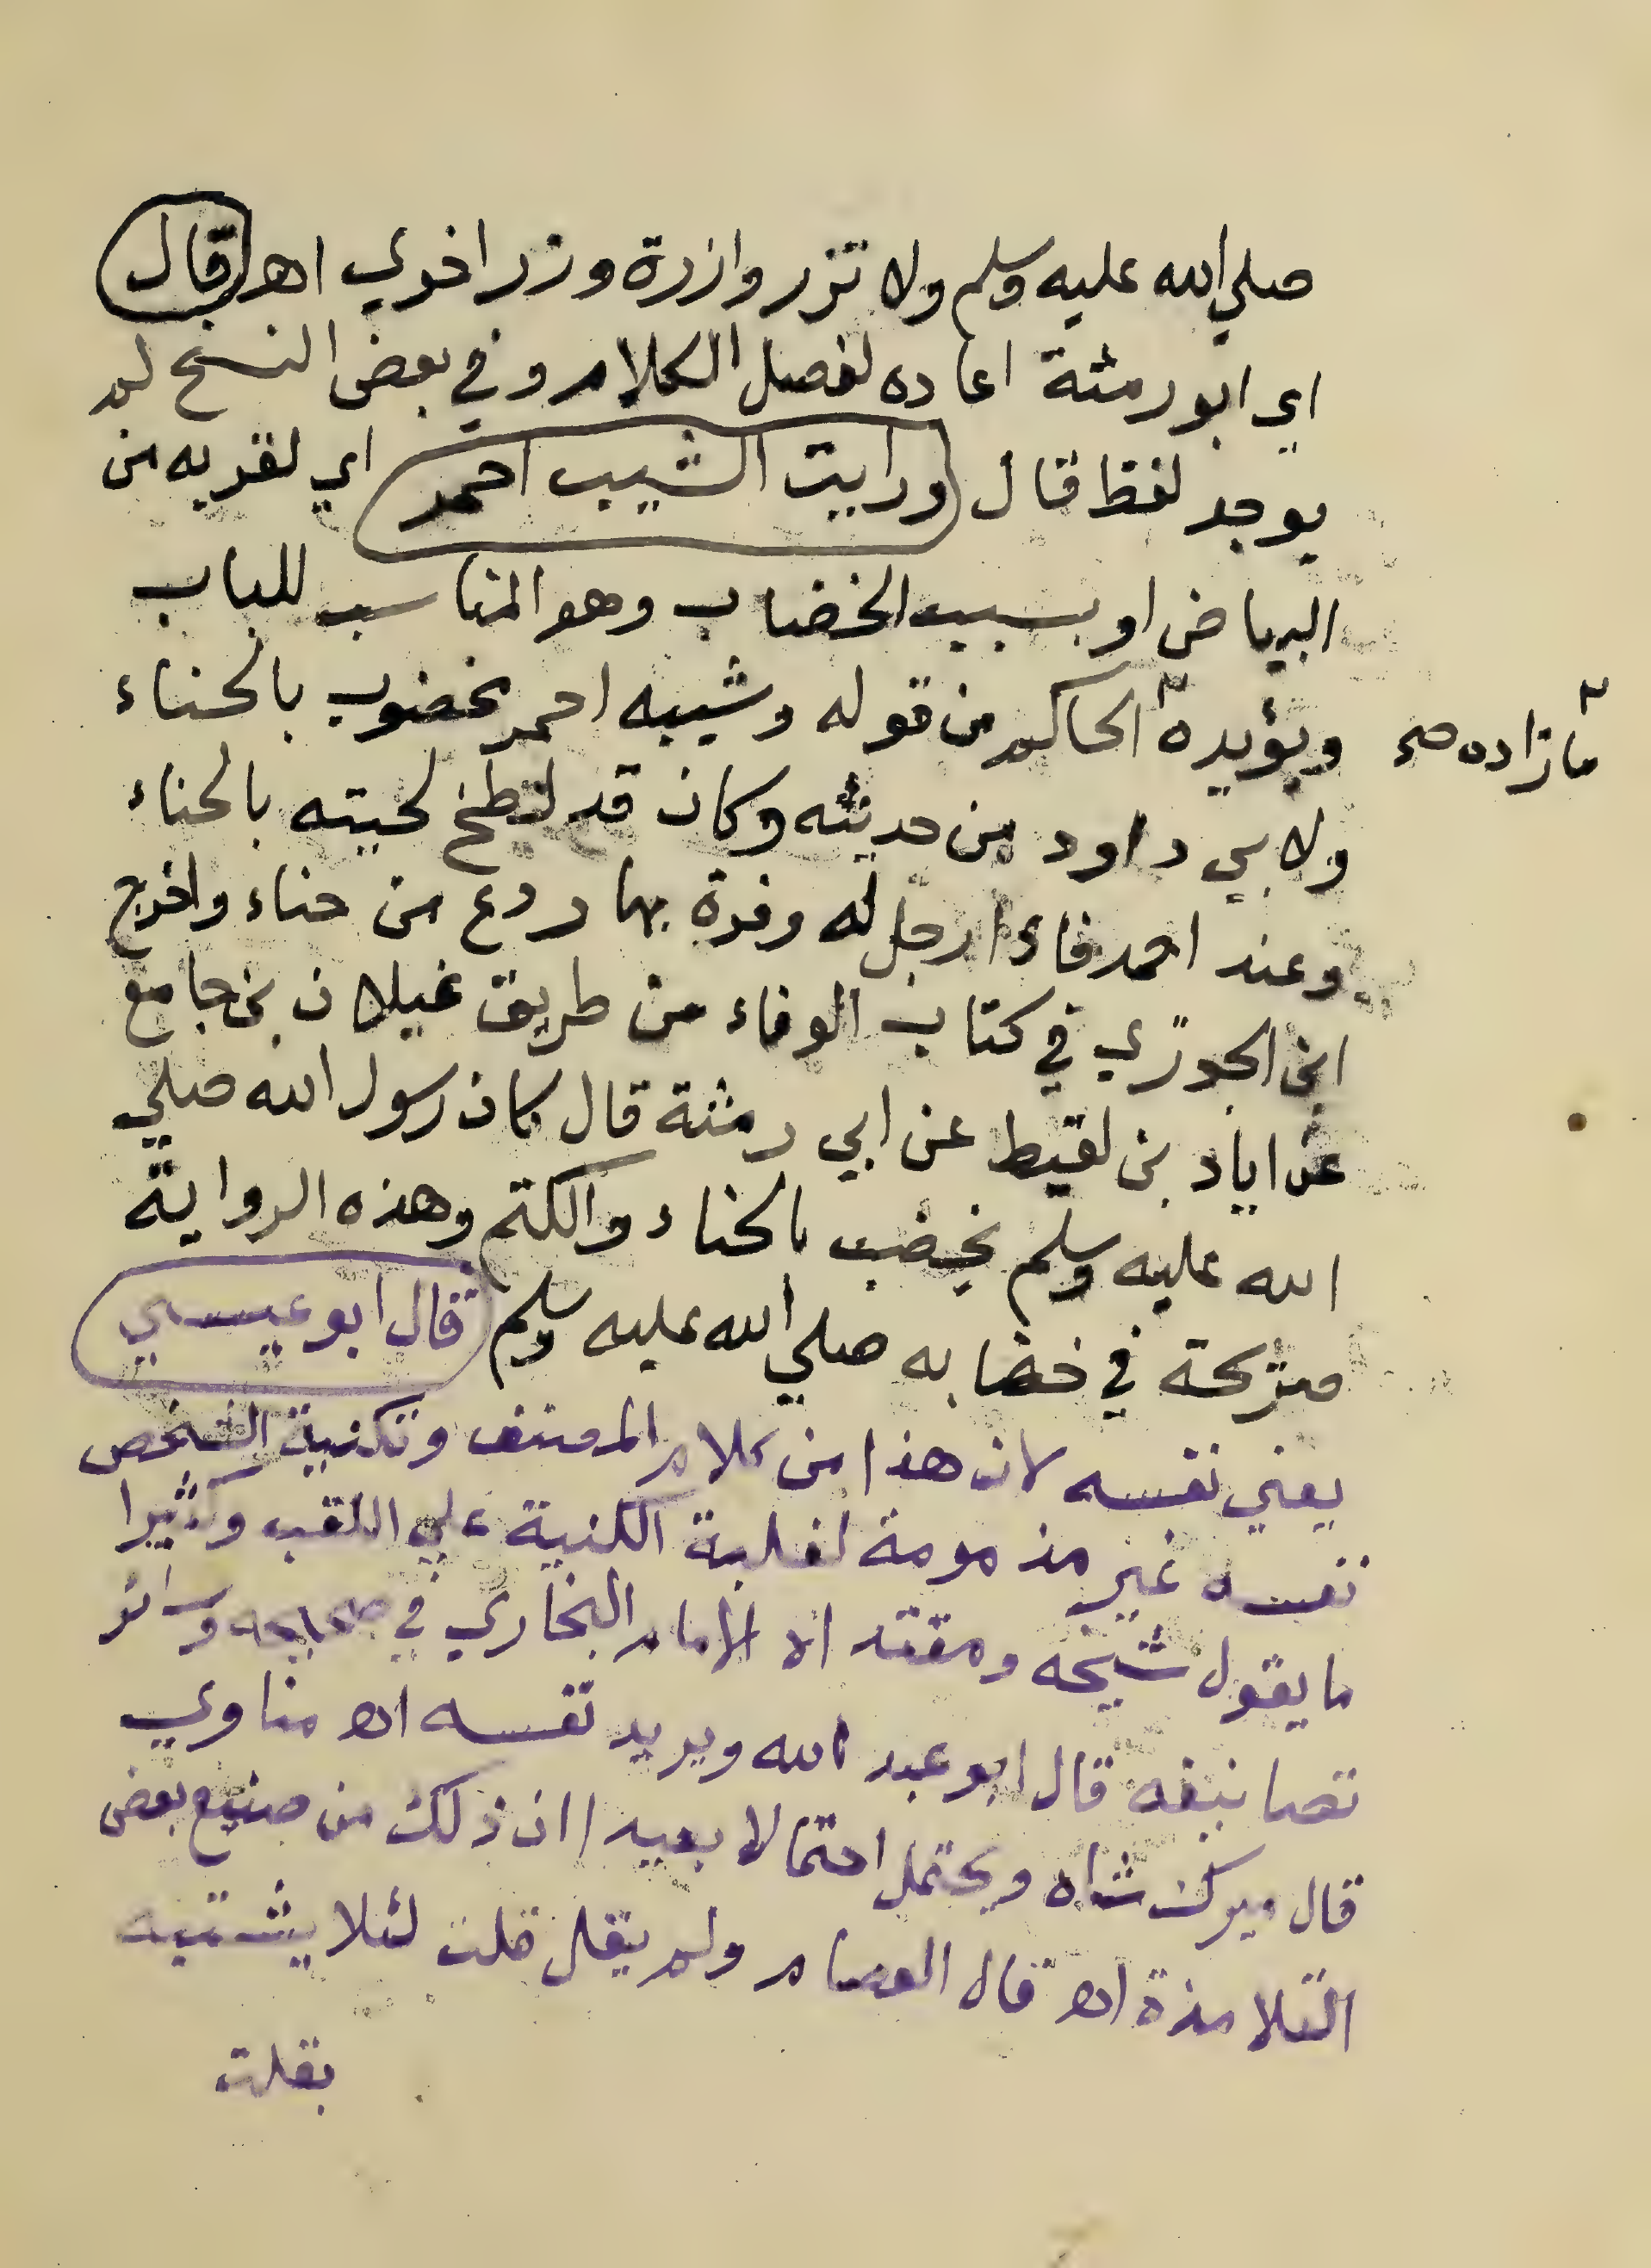 صلي الله عليه وسلم ولا تزر وازرة وزر اخري اهـ قال
اي ابو رمثة اعاده لفصل الكلام وفي بعض النسخ لم
يوجد لفظ قال ورايت الشيب احمر اي لقربه من
البياض او بسبب الخضاب وهو المناسب للباب
ويؤيده الحاكم من قوله وشيبه احمر مخضوب بالحناء
ما زاده صح
ولابي داود من حديثه وكان قد لطخ لحيته بالحناء
وعند احمد فاذا رجل له وفرة بها ردع من حناء واخرج
ابن الجوزي في كتاب الوفاء من طريق غيلان بن جامع
عن اياد بن لقيط عن ابي رمثة قال كان رسول الله صلي
الله عليه وسلم يخضب بالحناء والكتم وهذه الرواية
صريحة في خضابه صلي الله عليه وسلم قال ابو عيسي
يعني نفسه لان هذا من كلام المصنف وتكنية الشخص
نفسه غير مذمومة لغلبة الكنية علي اللقب وكثيرا
ما يقول شيخه ومقتداه الامام البخاري في صحيحه وسائر
تصانيفه قال ابو عبد الله ويريد نفسه اهـ مناوي
قال ميرك شاه ويحتمل احتمالا بعيدا ان ذلك من صنيع بعض
التلامذة اهـ قال العصام ولم يقل قلت لئلا يشتبه
بقلت